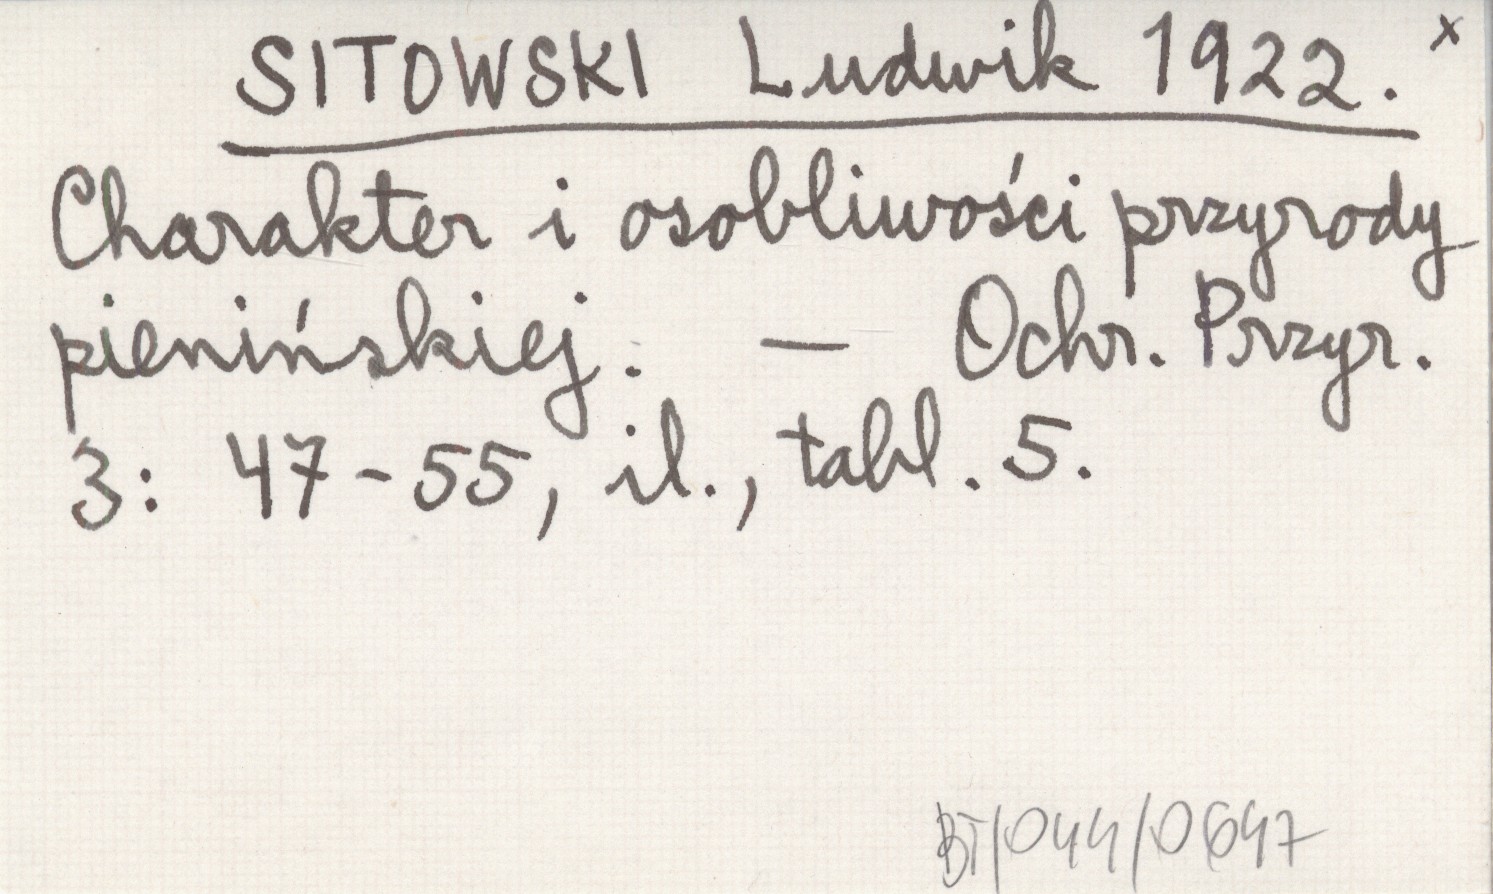 SITOWSKI Ludwik 1922. x
Charakter i osobliwości przyrody
pienińskiej. — Ochr. Przyr.
3: 47-55, il., tabl. 5.
BT/044/0647